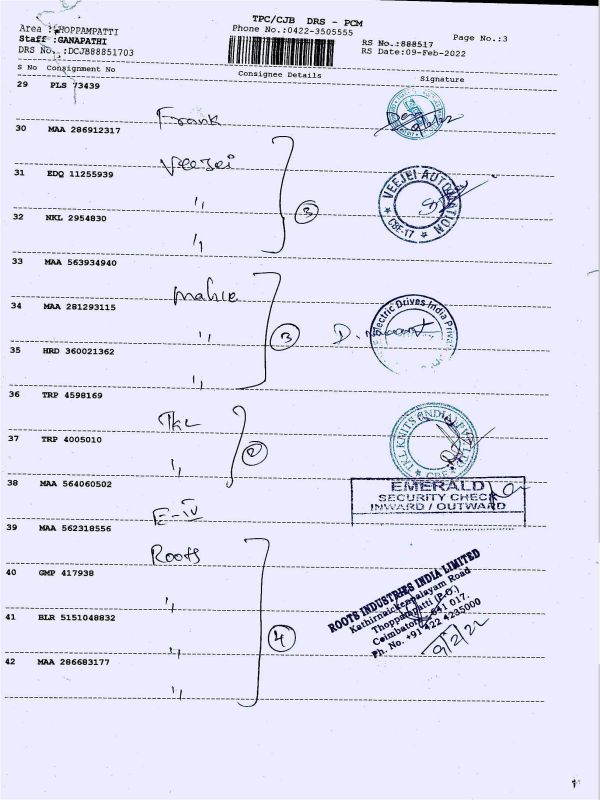 TPC/CJB DRS - PCM
Area :THOPPAMPATTI
Phone No.:0422-3505555
Page No.:3
Staff :GANAPATHI
RS No.:888517
DRS No.:DCJB88851703
RS Date:09-Feb-2022
S No Consignment No
Consignee Details
Signature
29 PLS 73439
Frank
9/2/22
30 MAA 286912317
Veejei
31 EDQ 11255939
"
VEEJEI AUTOMATION
CBE-17
3
32 NKL 2954830
"
33 MAA 563934940
Mahle
34 MAA 281293115
"
3
D.
Electric Drives India Priva
35 HRD 360021362
"
36 TRP 4598169
TKL
37 TRP 4005010
"
2
TKL KNITS (INDIA)
CBE
38 MAA 564060502
E-IV
EMERALD
SECURITY CHECK
INWARD / OUTWARD
39 MAA 562318556
Roots
40 GMP 417938
"
ROOTS INDUSTRIES INDIA LIMITED
Kathirnaickenpalayam Road
Thoppampatti (P.O.)
Coimbatore - 641 017.
Ph. No. +91 422 4235000
9/2/22
41 BLR 5151048832
"
4
42 MAA 286683177
"